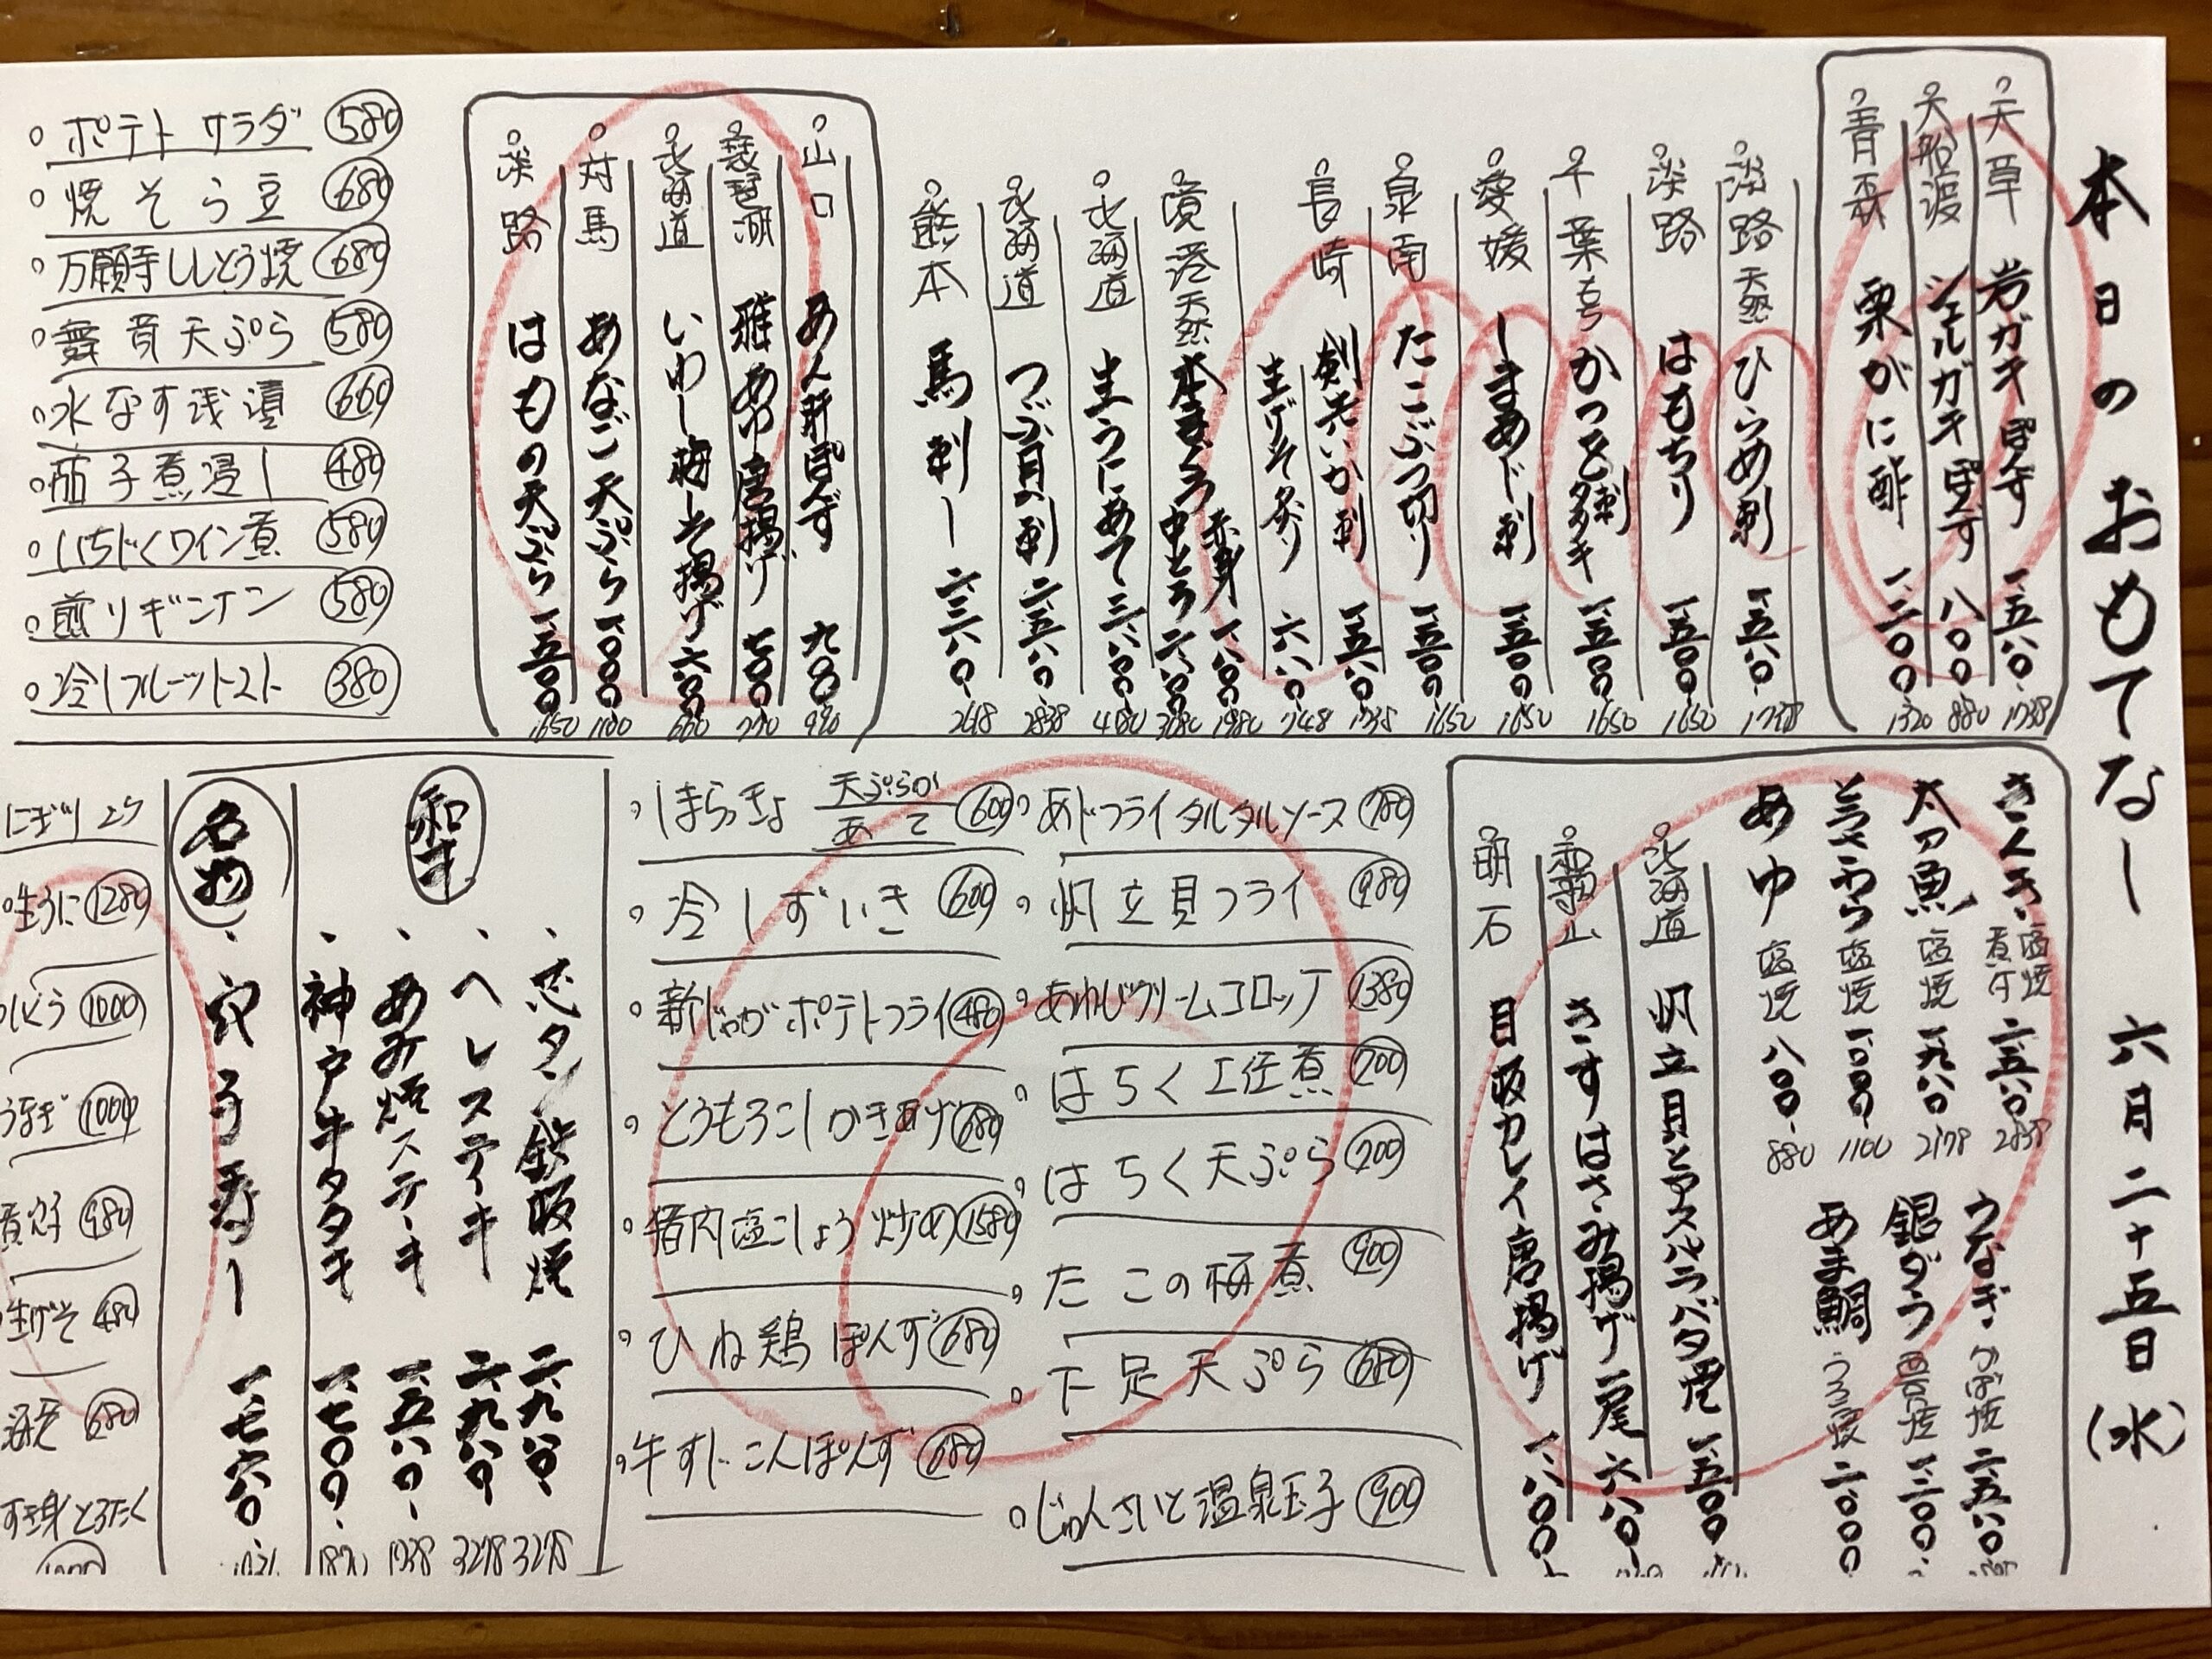 本日のおもてなし 六月二十五日(水)
天草 岩ガキぽんず 一、五八〇 1738
大船渡 シェルガキぽんず 八〇〇 880
青森 栗がに酢 一、二〇〇 1320
淡路 天然 ひらめ刺 一、五八〇 1738
淡路 はもちり 一、五〇〇 1650
千葉 もち かつを 刺 タタキ 一、五〇〇 1650
愛媛 しまあじ刺 一、五〇〇 1650
泉南 たこぶつ切り 一、五〇〇 1650
長崎 剣先いか刺 一、五八〇 1738
生げそ炙り 六八〇 748
境港 天然 本まぐろ 赤身 一、八〇〇 1980
中とろ 二、八〇〇 3080
北海道 生うにあて 三、八〇〇 4180
北海道 つぶ貝刺 二、五八〇 2838
熊本 馬刺し 二、三八〇 2618
山口 あん肝ぽんず 九〇〇 990
琵琶湖 稚あゆ唐揚げ 七〇〇 770
北海道 いわし梅しそ揚げ 六〇〇 660
対馬 あなご天ぷら 一、〇〇〇 1100
淡路 はもの天ぷら 一、五〇〇 1650
ポテトサラダ 580
焼そら豆 680
万願寺ししとう焼 680
舞茸天ぷら 580
水なす浅漬 660
茄子煮浸し 480
いちじくワイン煮 580
煎りギンナン 580
冷しフルーツトマト 380
きんき 塩焼 煮付 二、五八〇 2838
太刀魚 塩焼 一、九八〇 2178
とろさわら 塩焼 一、〇〇〇 1100
あゆ 塩焼 八〇〇 880
うなぎ かば焼 二、五八〇
銀ダラ 西京焼 一、二〇〇
あま鯛 うろこ焼 二、〇〇〇
北海道 帆立貝とアスパラバタ焼 一、五〇〇
和歌山 きすはさみ揚げ 二尾 六八〇
明石 目板カレイ唐揚げ 一、八〇〇
あじフライタルタルソース 780
帆立貝フライ 980
あわじクリームコロッケ 1380
はちく土佐煮 700
はちく天ぷら 700
たこの梅煮 900
下足天ぷら 680
じゅんさいと温泉玉子 900
しまらっきょ 天ぷらか あて 600
冷しずいき 600
新じゃがポテトフライ 480
とうもろこしかきあげ 680
猪肉塩こしょう炒め 1580
ひね鶏ぽんず 680
牛すじこんぽんず 680
和牛
芯タン鉄板焼 二、九八〇 3278
ヘレステーキ 二、九八〇 3278
あみ焼ステーキ 一、五八〇 1738
神戸牛タタキ 一、七〇〇 1870
名物
穴子寿し 一、七六〇
にぎり
生うに 1280
うなぎ 1000
煮穴子 980
生げそ 480
すき身とろたく